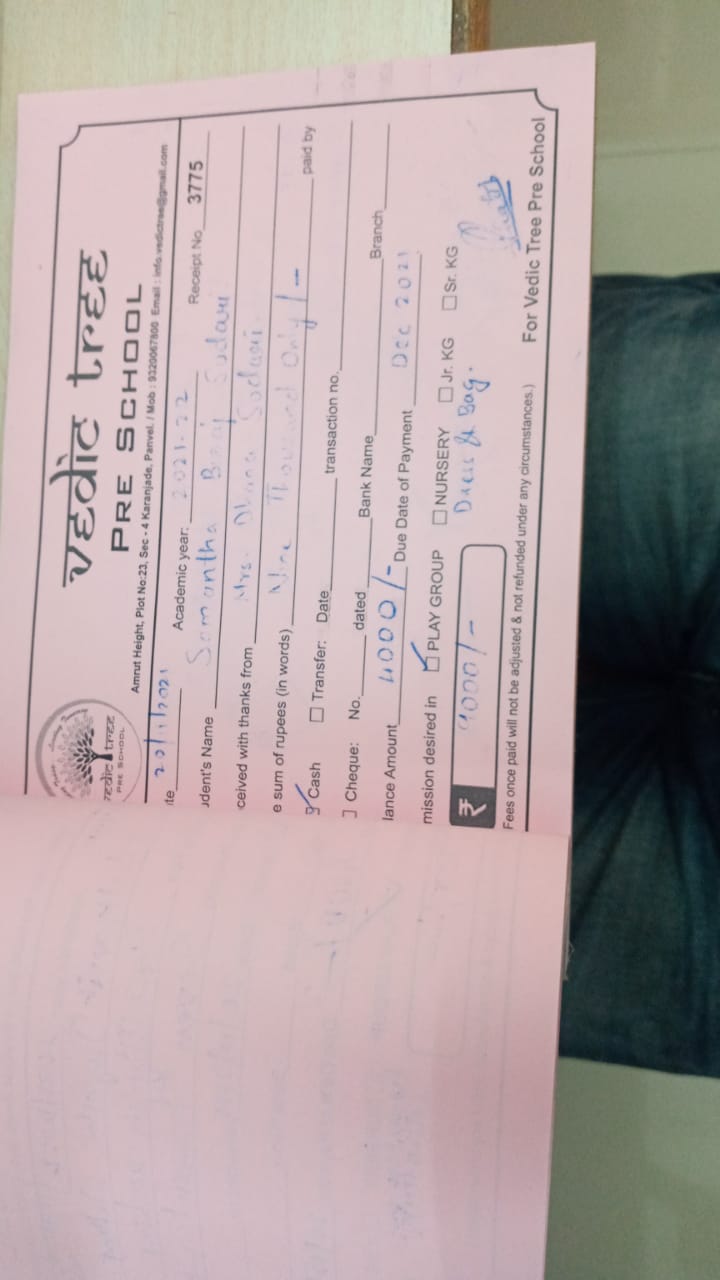 vedic tree
PRE SCHOOL
vedic tree
PRE SCHOOL
Amrut Height, Plot No:23, Sec - 4 Karanjade, Panvel. / Mob : 9320067800 Email : info.vedictree@gmail.com
te 20/11/2021 Academic year: 2021-22 Receipt No 3775
udent's Name Samantha Sudari
ceived with thanks from Mrs. Sudari
e sum of rupees (in words) Nine Thousand Only/- paid by
Cash Transfer: Date transaction no.
Cheque: No. dated Bank Name Branch
lance Amount 4000/- Due Date of Payment Dec 2021
mission desired in PLAY GROUP NURSERY Jr. KG Sr. KG
₹ 9000/- Dress & Bag.
Fees once paid will not be adjusted & not refunded under any circumstances.) For Vedic Tree Pre School